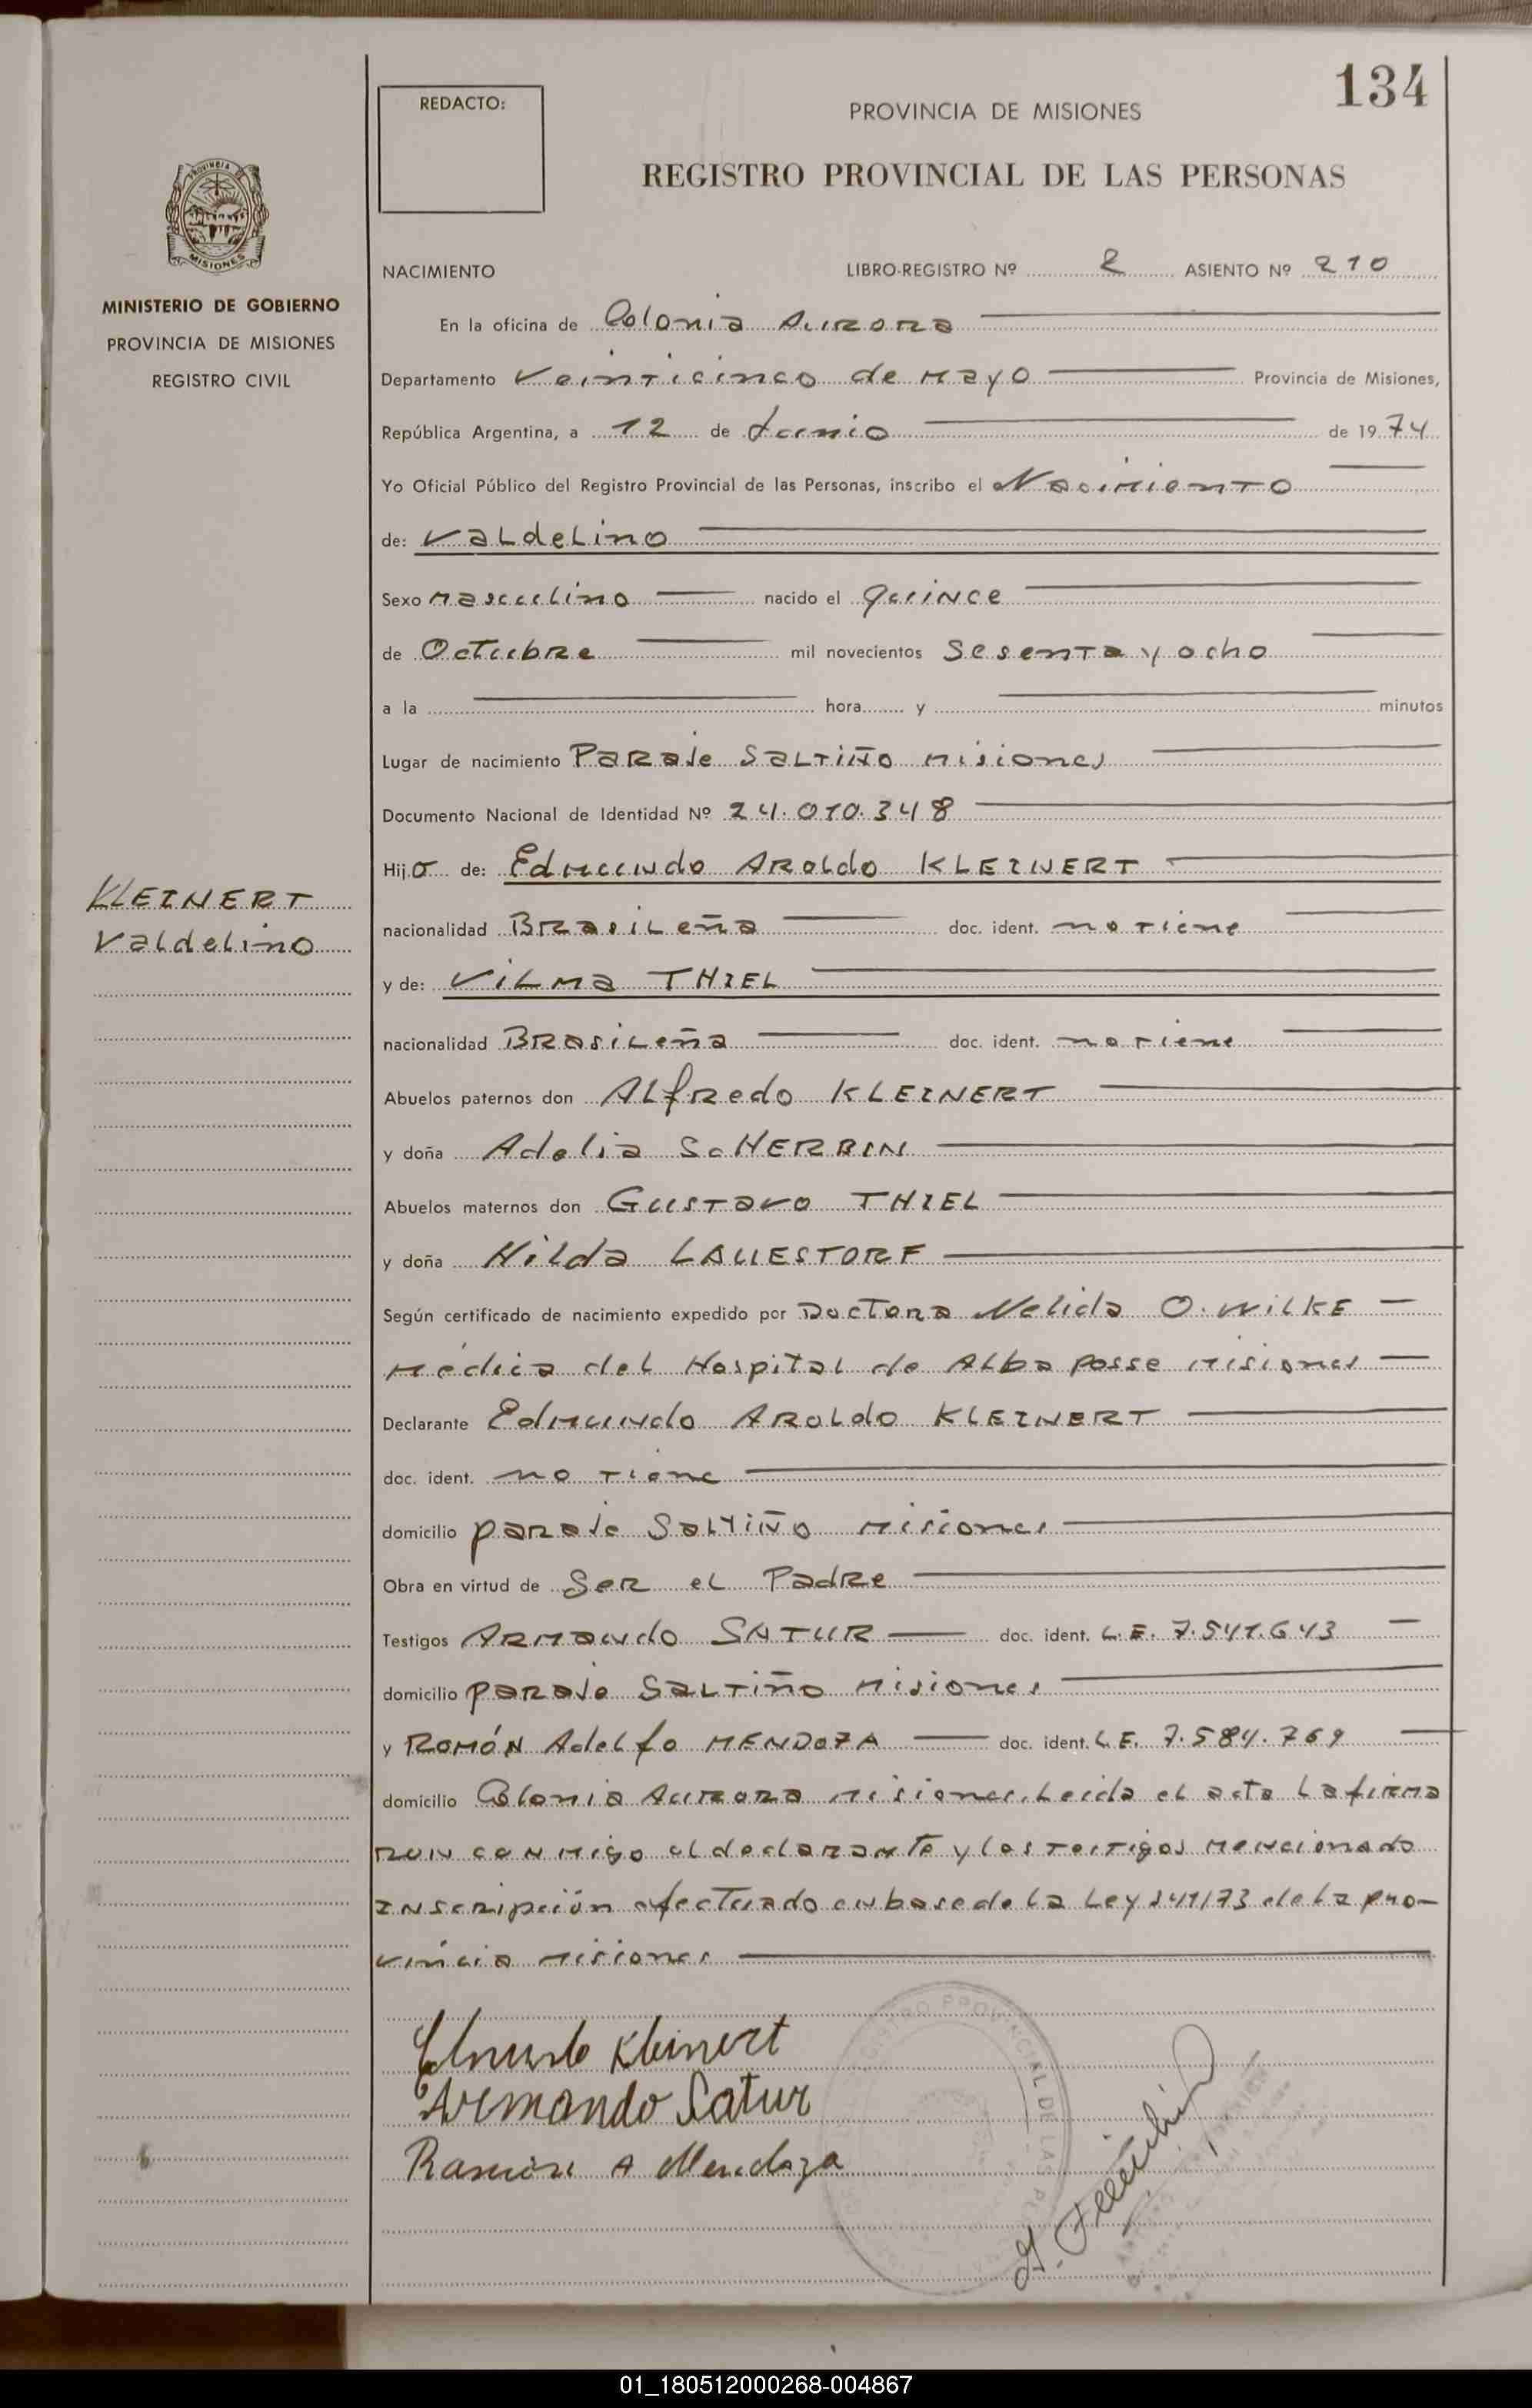 134
REDACTO:
PROVINCIA DE MISIONES
REGISTRO PROVINCIAL DE LAS PERSONAS
MISIONES
MINISTERIO DE GOBIERNO
PROVINCIA DE MISIONES
REGISTRO CIVIL
KLEINERT
Valdelino
NACIMIENTO LIBRO-REGISTRO Nº 2 ASIENTO Nº 210
En la oficina de Colonia Aurora
Departamento Veinticinco de Mayo Provincia de Misiones,
República Argentina, a 12 de Junio de 1974
Yo Oficial Público del Registro Provincial de las Personas, inscribo el Nacimiento
de: Valdelino
Sexo Masculino nacido el Quince
de Octubre mil novecientos Sesenta y ocho
a la hora y minutos
Lugar de nacimiento Paraje Saltiño Misiones
Documento Nacional de Identidad Nº 24.010.348
Hijo de: Edmundo Aroldo KLEINERT
nacionalidad Brasileña doc. ident. no tiene
y de: Vilma THIEL
nacionalidad Brasileña doc. ident. no tiene
Abuelos paternos don Alfredo KLEINERT
y doña Adelia ScHERBIN
Abuelos maternos don Gustavo THIEL
y doña Hilda LAUESTORF
Según certificado de nacimiento expedido por Doctora Nelida O. WILKE
Médica del Hospital de Alba Posse Misiones
Declarante Edmundo Aroldo KLEINERT
doc. ident. no tiene
domicilio Paraje Saltiño Misiones
Obra en virtud de Ser el Padre
Testigos Armando SATUR doc. ident. L.E. 7.541.643
domicilio Paraje Saltiño Misiones
y Romón Adelfo MENDOZA doc. ident. L.E. 7.584.769
domicilio Colonia Aurora Misiones. Leida el acta La firma
ron conmigo el declarante y los testigos mencionado
Inscripción efectuado en base de La Ley 241/73 de la pro-
vincia Misiones
Edmundo Kleinert
Armando Satur
Ramón A Mendoza
01_180512000268-004867